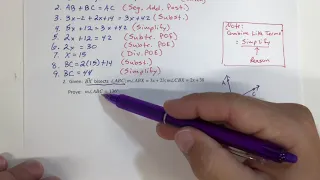 2. AB + BC = AC (Seg. Add. Post.)
3. 3x-2 + 2x+14 = 3x+42 (Subst.)
4. 5x + 12 = 3x + 42 (Simplify)
5. 2x + 12 = 42 (Subtr. POE)
6. 2x = 30 (Subtr. POE)
7. X = 15 (Div. POE)
8. BC = 2(15) + 14 (Subst.)
9. BC = 44 (Simplify)
Note:
"Combine Like Terms"
= Simplify
Reason
Given:
bisects
Prove: